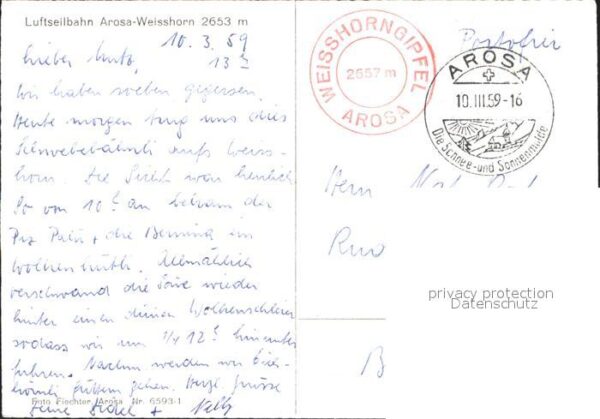 Luftseilbahn Arosa-Weisshorn 2653 m
10.3.59
13 h
Lieber
Wir haben soeben gegessen
Heute morgen trug uns das
Schwebebähnli aufs Weiss-
horn. Die Sicht war herrlich
So von 10 h an bekam der
Piz Palü + die Bernina ein
Wolkenhütli. Allmählich
verschwand die Sonne wieder
hinter einen dünnen Wolkenschleier
sodass wir um 1/4 12 h hinunter
fuhren. Nachm. werden wir Eich-
hörnli füttern gehen. Herzl. Grüsse
Deine + Nelly
Foto Fiechter, Arosa Nr. 6593-1
WEISSHORNGIPFEL
2657 m
AROSA
Portofrei
AROSA
10.III.59-16
Die Schnee- und Sonnenmulde
Herrn
privacy protection
Datenschutz
B